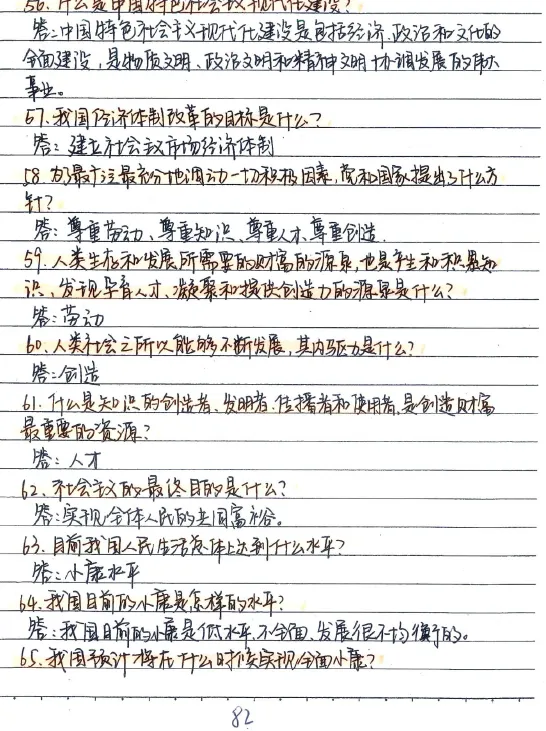 56、什么是中国特色社会主义现代化建设？
答：中国特色社会主义现代化建设是包括经济、政治和文化的
全面建设，是物质文明、政治文明和精神文明协调发展的伟大
事业。
57、我国经济体制改革的目标是什么？
答：建立社会主义市场经济体制
58、为了最广泛最充分地调动一切积极因素，党和国家提出了什么方
针？
答：尊重劳动、尊重知识、尊重人才、尊重创造.
59、人类生存和发展所需要的财富的源泉，也是产生和积累知
识、发现孕育人才、凝聚和提供创造力的源泉是什么？
答：劳动
60、人类社会之所以能够不断发展，其内驱力是什么？
答：创造
61、什么是知识的创造者、发明者、传播者和使用者，是创造财富
最重要的资源？
答：人才
62、社会主义的最终目的是什么？
答：实现全体人民的共同富裕。
63、目前我国人民生活总体上达到什么水平？
答：小康水平
64、我国目前的小康是怎样的水平？
答：我国目前的小康是低水平、不全面、发展很不均衡的。
65、我国预计将在什么时候实现全面小康？
82